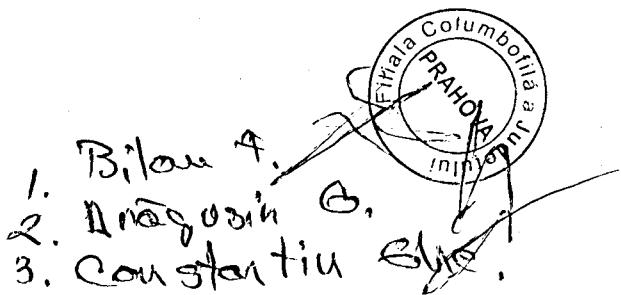 Filiala Columbofilă a Județului
PRAHOVA
1. Bilau A.
2. Drăgușin G.
3. Constantin